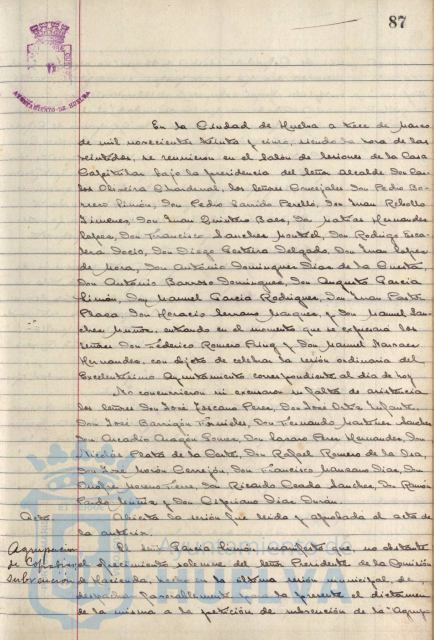 87
AYUNTAMIENTO DE HUELVA
En la Ciudad de Huelva a trece de Marzo
de mil novecientos treinta y cinco, siendo la hora de las
veintidos, se reunieron en el Salón de Sesiones de la Casa
Capitular bajo la presidencia del Señor Alcalde Don Car-
los Oliveira Chardenal, los Señores Concejales Don Pedro Bo-
rrero Limón, Don Pedro Garrido Perelló, Don Juan Rebollo
Jimenez, Don Juan Quintero Baez, Don Matías Hernandez
Lopez, Don Francisco Sanchez Don Rodrigo
Don Diego Delgado, Don Juan Lopez
de Mora, Don Antonio Dominguez Diaz de la Cuesta,
Don Antonio Barroso Dominguez, Don Augusto Garcia
Limón, Don Manuel Garcia Rodriguez, Don Juan
Plaza, Don Horacio Serrano Marquez, y Don Manuel San-
chez Muñoz, entrando en el momento que se expresará los
Señores Don Federico Romero y Don Manuel Narvaez
Hernandez, con objeto de celebrar la sesión ordinaria del
Excelentísimo Ayuntamiento correspondiente al día de hoy
No concurrieron ni excusaron su falta de asistencia
los Señores Don José Toscano Perez, Don José Ortiz Infante,
Don José Barrigón Don Fernando Martinez Sanchez
Don Arcadio Aragón Gomez, Don Lazaro Perez Hernandez, Don
Nicolás de la Corte, Don Rafael Romero de la Osa,
Don José Morón Cerrejón, Don Francisco Manzano Diaz, Don
Moreno Don Ricardo Sanchez, Don Ramón
Pardo y Don Cipriano Diaz Durán.
Acta. Abierta la sesión fué leida y aprobada el acta de
la anterior.
Agrupación El señor Garcia Limón, manifestó que, no obstante
de el ofrecimiento solemne del señor Presidente de la Comisión
subvención de Hacienda, hecho en la última sesión municipal, de
despachar favorablemente para la presente el dictamen
de la misma a la petición de subvención de la "Agrup-